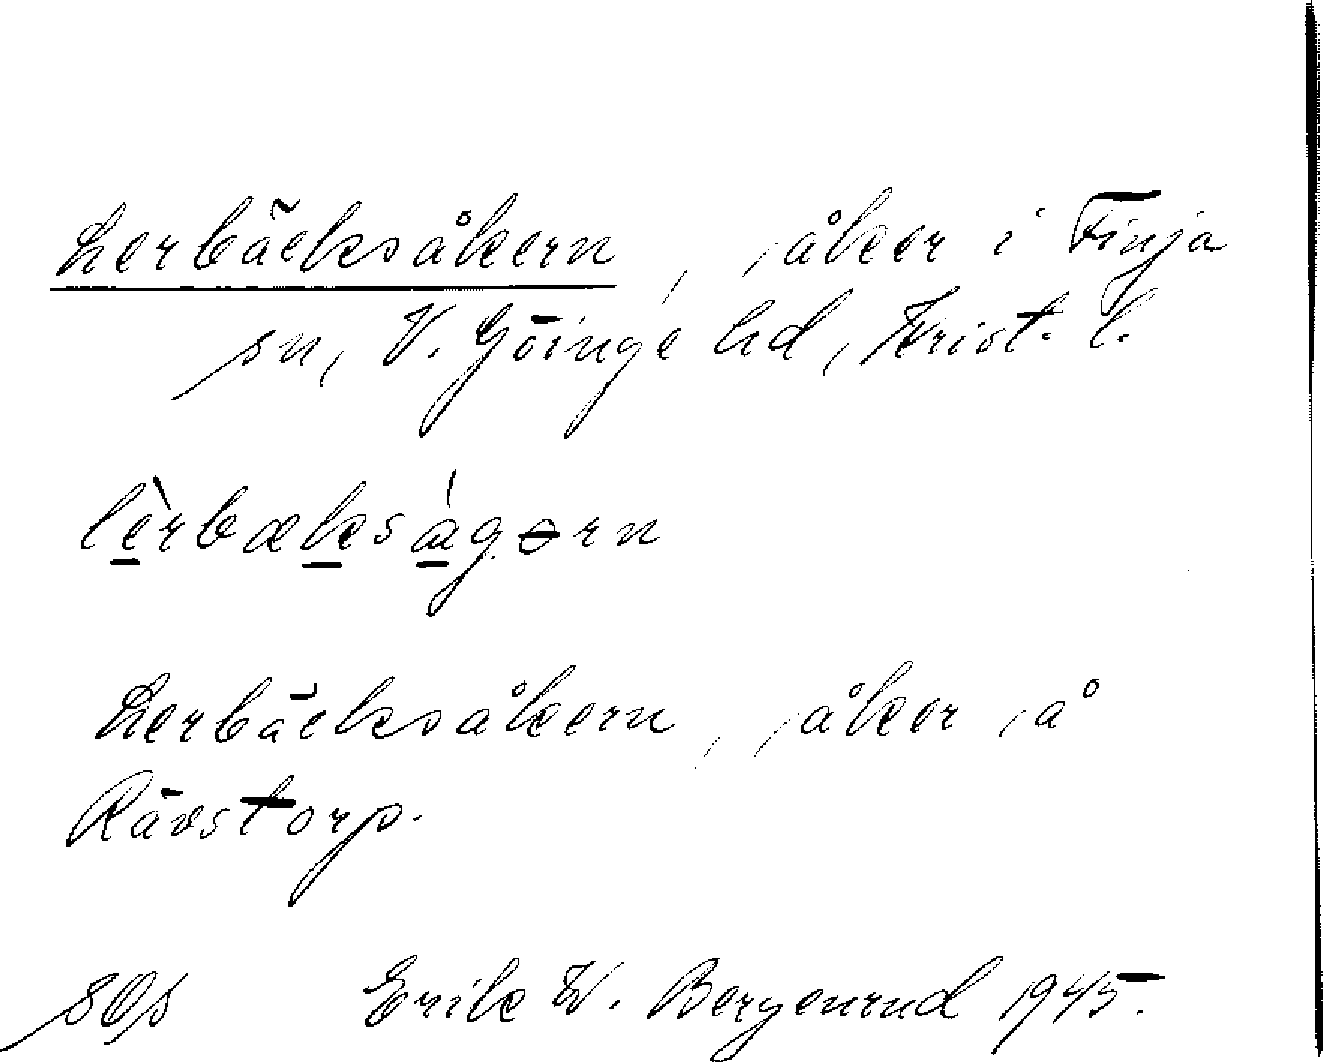 Lerbäcksåkern, åker i Finja
sn, V. Göinge hd, Krist. l.
lèrbækságərn
Lerbäcksåkern, åker å
Rävstorp.
Erik W. Bergenrud 1945.